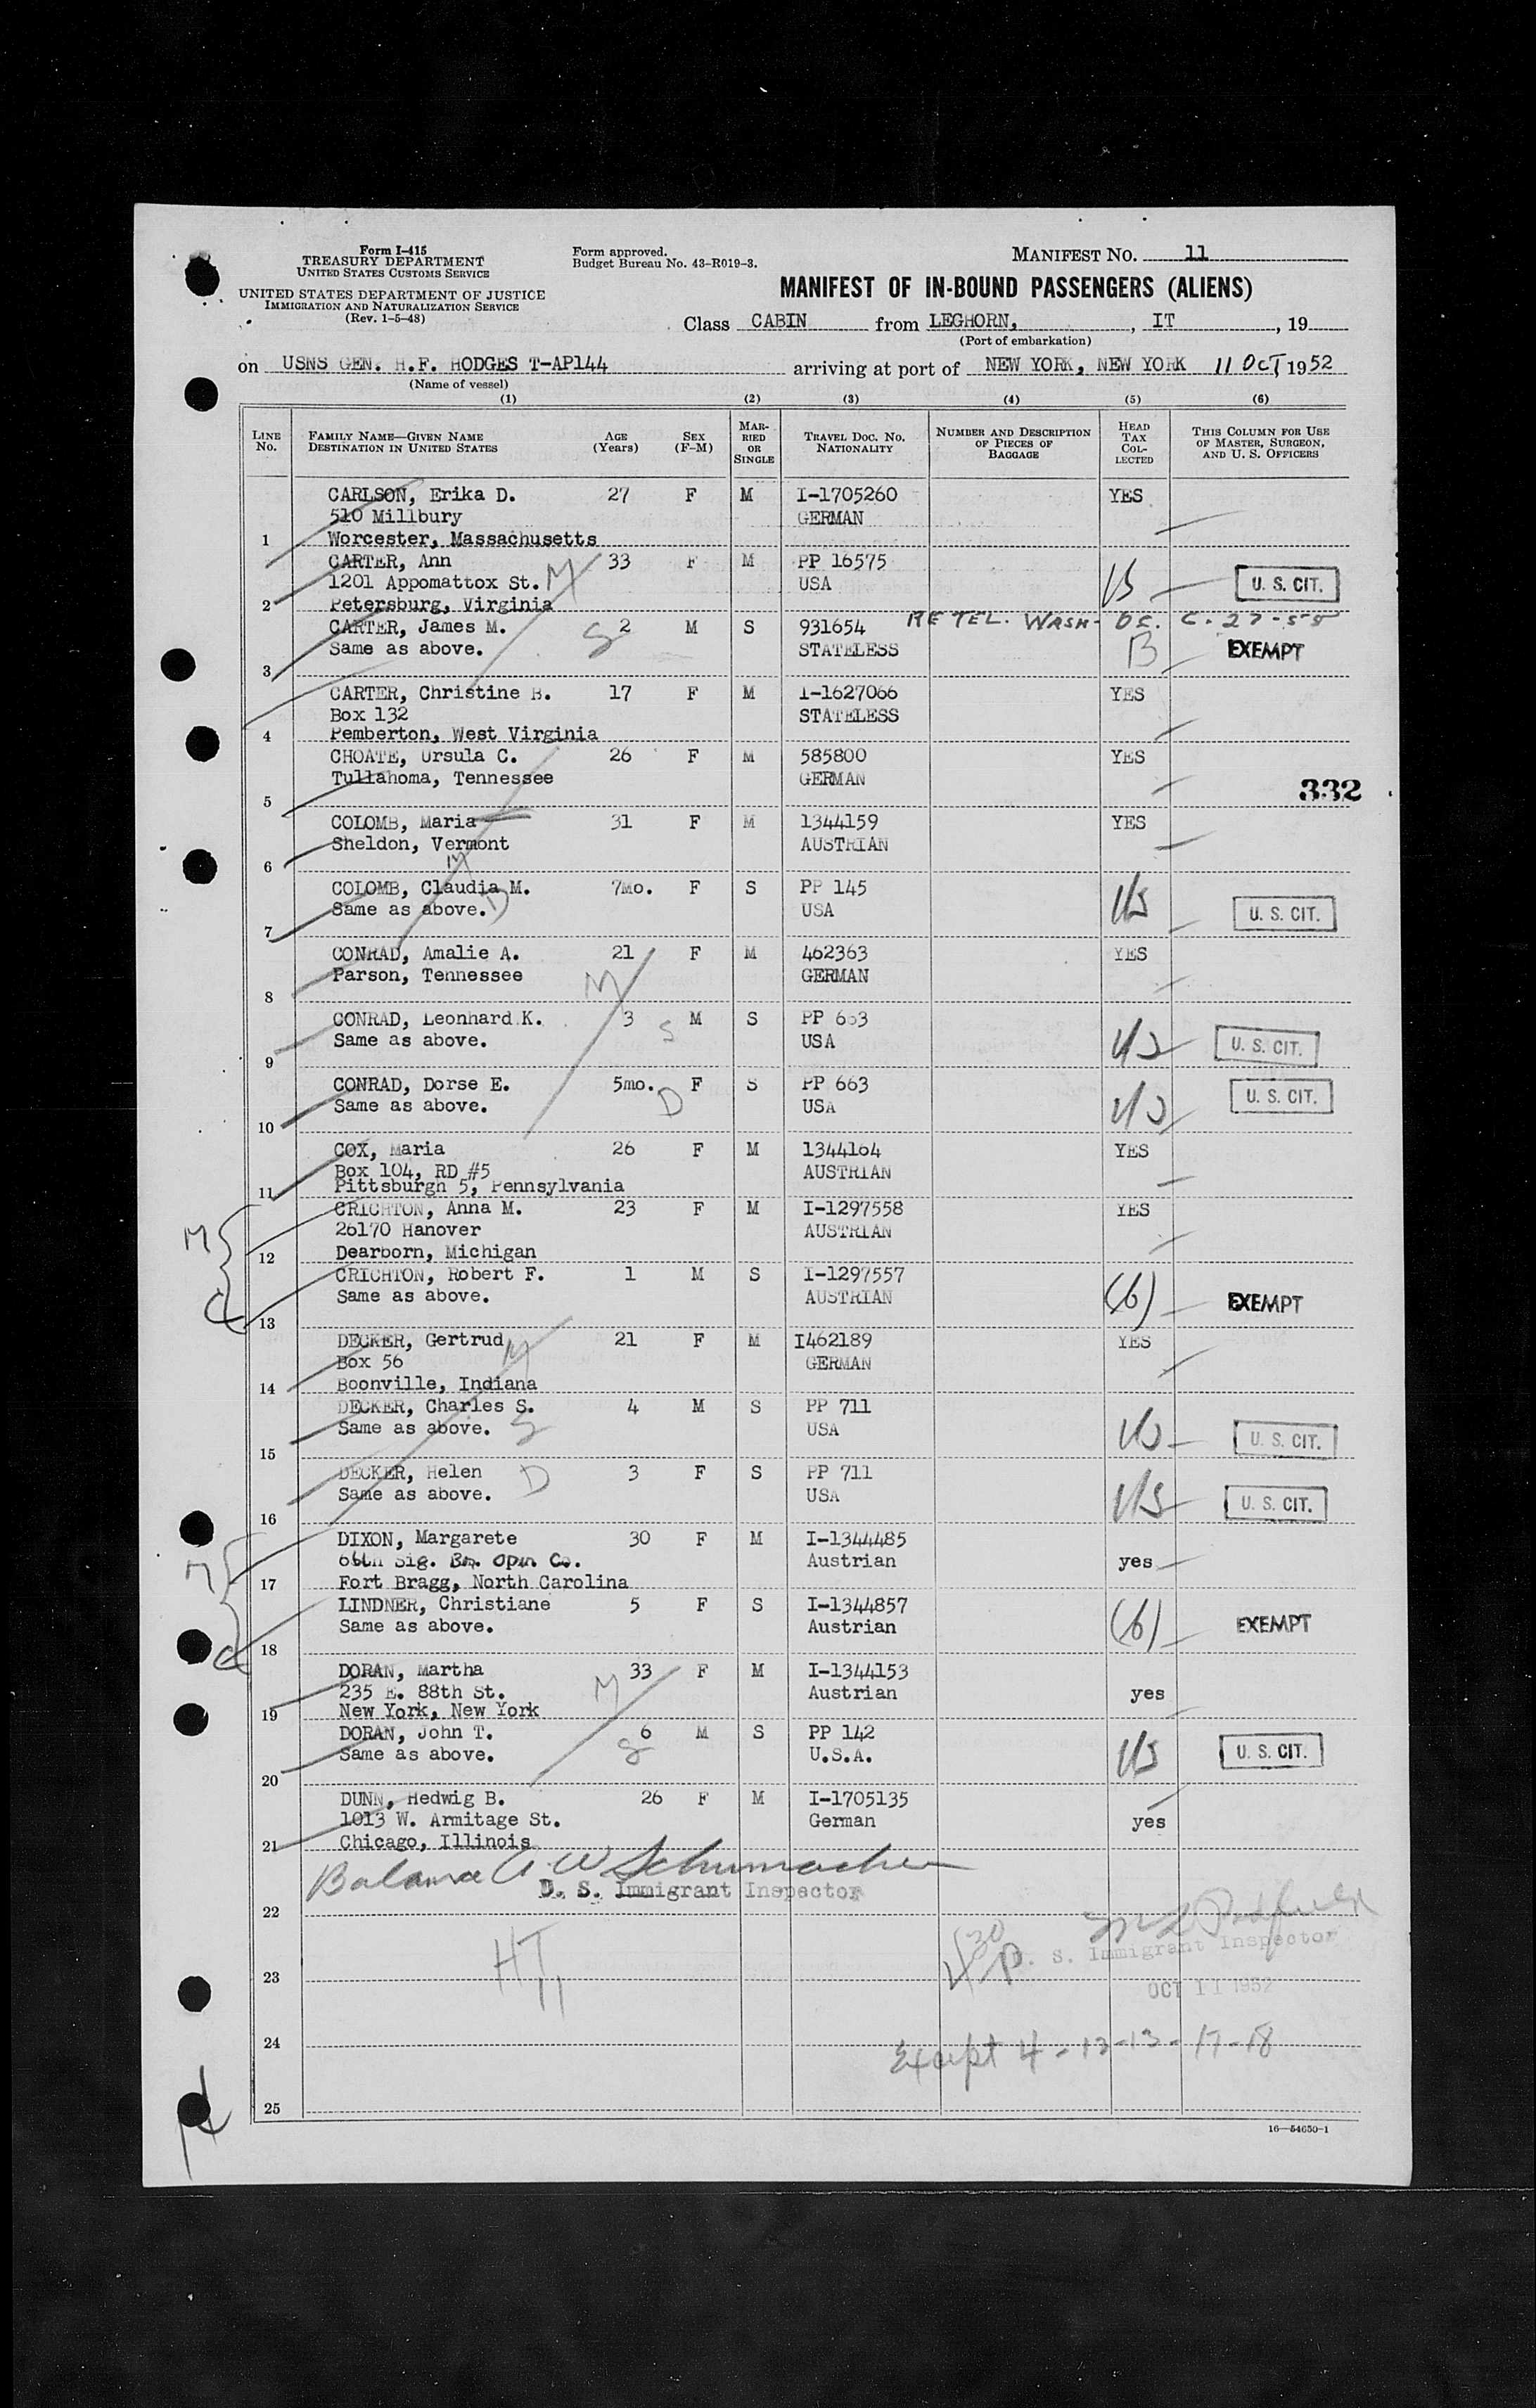 Form I-415
TREASURY DEPARTMENT
UNITED STATES CUSTOMS SERVICE
UNITED STATES DEPARTMENT OF JUSTICE
IMMIGRATION AND NATURALIZATION SERVICE
(Rev. 1-5-48)
Form approved.
Budget Bureau No. 43-R019-3.
MANIFEST NO. 11
MANIFEST OF IN-BOUND PASSENGERS (ALIENS)
Class CABIN from LEGHORN, , IT , 19
(Port of embarkation)
on USNS GEN. H.F. HODGES T-AP144 arriving at port of NEW YORK, NEW YORK 11 OCT 1952
(Name of vessel)
(1) (2) (3) (4) (5) (6)
LINE No. FAMILY NAME—GIVEN NAME DESTINATION IN UNITED STATES AGE (Years) SEX (F-M) MARRIED OR SINGLE TRAVEL DOC. NO. NATIONALITY NUMBER AND DESCRIPTION OF PIECES OF BAGGAGE HEAD TAX COLLECTED THIS COLUMN FOR USE OF MASTER, SURGEON, AND U. S. OFFICERS
CARLSON, Erika D. 27 F M I-1705260 YES
510 Millbury GERMAN
1 Worcester, Massachusetts
CARTER, Ann 33 F M PP 16575
1201 Appomattox St. M USA U. S. CIT.
2 Petersburg, Virginia
RE TEL. WASH- DC.
CARTER, James M. S 2 M S 931654
Same as above. STATELESS B EXEMPT
3
CARTER, Christine B. 17 F M I-1627066 YES
Box 132 STATELESS
4 Pemberton, West Virginia
CHOATE, Ursula C. 26 F M 585800 YES
Tullahoma, Tennessee GERMAN
332
5
COLOMB, Maria 31 F M 1344159 YES
Sheldon, Vermont AUSTRIAN
6 M
COLOMB, Claudia M. 7mo. F S PP 145 US
Same as above. D USA U. S. CIT.
7
CONRAD, Amalie A. 21 F M 462363 YES
Parson, Tennessee M GERMAN
8
CONRAD, Leonhard K. 3 M S PP 663
Same as above. S USA US U. S. CIT.
9
CONRAD, Dorse E. 5mo. F S PP 663
Same as above. D USA US U. S. CIT.
10
COX, Maria 26 F M 1344164 YES
Box 104, RD #5 AUSTRIAN
11 Pittsburgh 5, Pennsylvania
CRICHTON, Anna M. 23 F M I-1297558 YES
M 26170 Hanover AUSTRIAN
12 Dearborn, Michigan
CRICHTON, Robert F. 1 M S I-1297557
Same as above. AUSTRIAN (6) EXEMPT
13
DECKER, Gertrud 21 F M I462189 YES
Box 56 M GERMAN
14 Boonville, Indiana
DECKER, Charles S. 4 M S PP 711
Same as above. S USA US U. S. CIT.
15
DECKER, Helen 3 F S PP 711
Same as above. D USA US U. S. CIT.
16
DIXON, Margarete 30 F M I-1344485
M 66th Sig. Bn. Opn Co. Austrian yes
17 Fort Bragg, North Carolina
LINDNER, Christiane 5 F S I-1344857
Same as above. Austrian (6) EXEMPT
18
DORAN, Martha 33 F M I-1344153
235 E. 88th St. M Austrian yes
19 New York, New York
DORAN, John T. 6 M S PP 142
Same as above. S U.S.A. US U. S. CIT.
20
DUNN, Hedwig B. 26 F M I-1705135
1013 W. Armitage St. German yes
21 Chicago, Illinois
Balance A W Schumacher
U. S. Immigrant Inspector
22
U. S. Immigrant Inspector
23
OCT 11 1952
24
Except 4 - 12-13 - 17-18
25
16—54650-1